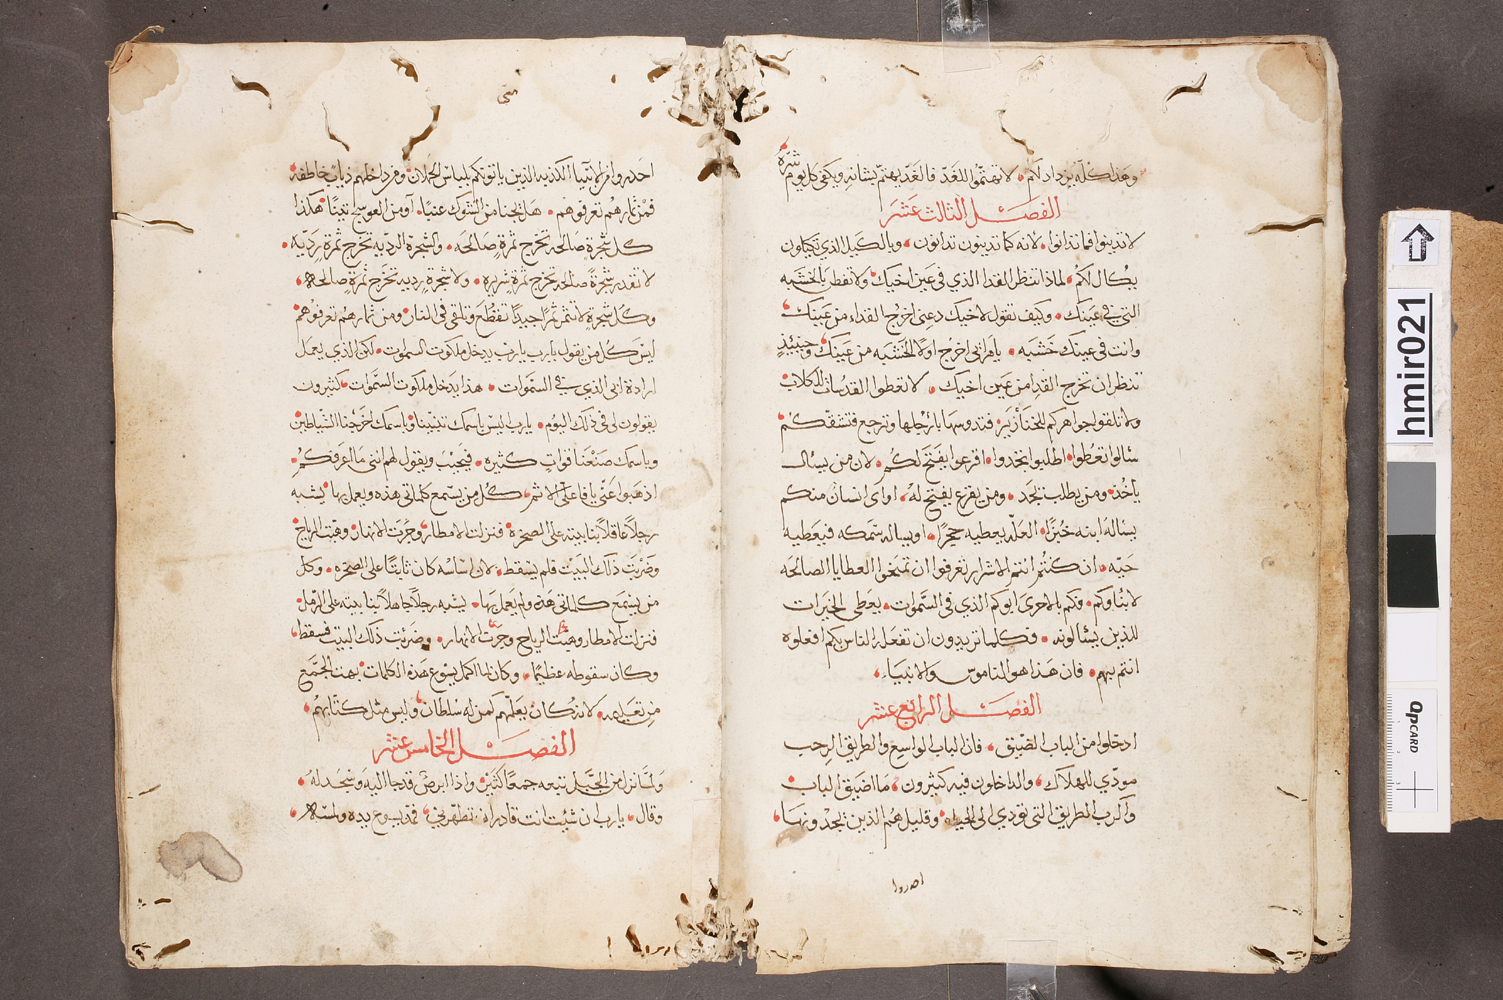 وهذا كله يزداد لكم. لا تهتموا للغد فالغد يهتم بشانه ويكفي كل يوم شره
الفصل الثالث عشر
لا تدينوا فما تدانوا. لانه كما تدينون تدانون. وبالكيل الذي تكيلون
يكال لكم. لماذا تنظر القدا الذي في عين اخيك ولا تفطن بالخشبه
التي في عينك. وكيف تقول لاخيك دعني اخرج القداء من عينك
وانت في عينك خشبه. يا مرائي اخرج اولا الخشبه من عينك وحينيذ
تنظر ان تخرج القدا من عين اخيك. لا تعطوا القدسات للكلاب
ولا تلقوا جواهركم للخنازير. فتدوسها بارجلها وترجع فتشقكم
سئلوا تعطوا. اطلبوا تجدوا. اقرعوا يفتح لكم. لان من يسال
ياخذ ومن يطلب يجد. ومن يقرع يفتح له. او اي انسان منكم
يساله ابنه خبزا. العله يعطيه حجرا. او يساله سمكه فيعطيه
حيه. ان كنتم انتم الاشرار تعرفوا ان تمنحوا العطايا الصالحه
لابناوكم. فكم بالاحرى ابوكم الذي في السموات. يعطي الخيرات
للذين يسئالونه. فكلما تريدون ان تفعله الناس بكم افعلوه
انتم بهم. فان هذا هو الناموس والانبياء.
الفصل الرابع عشر
ادخلوا من الباب الضيق. فان الباب الواسع والطريق الرحب
مودي للهلاك. والداخلون فيه كثيرون. ما اضيق الباب
واكرب الطريق التي تودي الى الحياه. وقليل هم الذين يجدونها.
احدروا
متى
احدروا من الانبيا الكذبه الذين ياتونكم بلباس الحملان ومن داخلهم دياب خاطفه
فمن ثمارهم تعرفوهم. هل يجنا من الشوك عنبا. او من العوسج تينا هكذا
كل شجرة صالحه تخرج ثمرة صالحه. والشجرة الرديه تخرج ثمرة رديه.
لا تقدر شجرة صالحه تخرج ثمرة شريره. ولا شجرة رديه تخرج ثمرة صالحه.
وكل شجرة لا تثمر ثمرا جيدا تقطع وتلقى في النار ومن ثمارهم تعرفوهم
ليس كل من يقول يا رب يا رب يدخل ملكوت السموات. لكن الذي يعمل
ارادة ابي الذي في السموات. هذا يدخل ملكوت السموات كثيرون
يقولون لي في ذلك اليوم. يا رب اليس باسمك تنبينا وباسمك اخرجنا الشياطين
وباسمك صنعنا قوات كثيره. فيجيب ويقول لهم انني ما اعرفكم.
اذهبوا عني يا فاعلي الاثم. كل من يسمع كلماتي هذه ويعمل بها يشبه
رجلا عاقلا بنا بيته على الصخره فنزلت الامطار وجرت الانهار وهبت الرياح
وضربت ذلك البيت فلم يسقط. لان اساسه كان ثابتا على الصخره. وكل
من يسمع كلماتي هذه ولم يعمل بها. يشبه رجلا جاهلا بنا بيته على الرمل
فنزلت الامطار وهبت الرياح وجرت الانهار. وضربت ذلك البيت فسقط
وكان سقوطه عظيما. وكان لما اكمل يسوع هذه الكلمات بهت الجمع
من تعليمه. لانه كان يعلمهم كمن له سلطان وليس مثل كتابهم
الفصل الخامس عشر
ولما نزل من الجبل تبعه جمعا كثير واذا ابرص قد جا اليه وسجد له.
وقال. يا رب ان شئت انت قادر ان تطهرني. فمد يسوع يده ولمسه